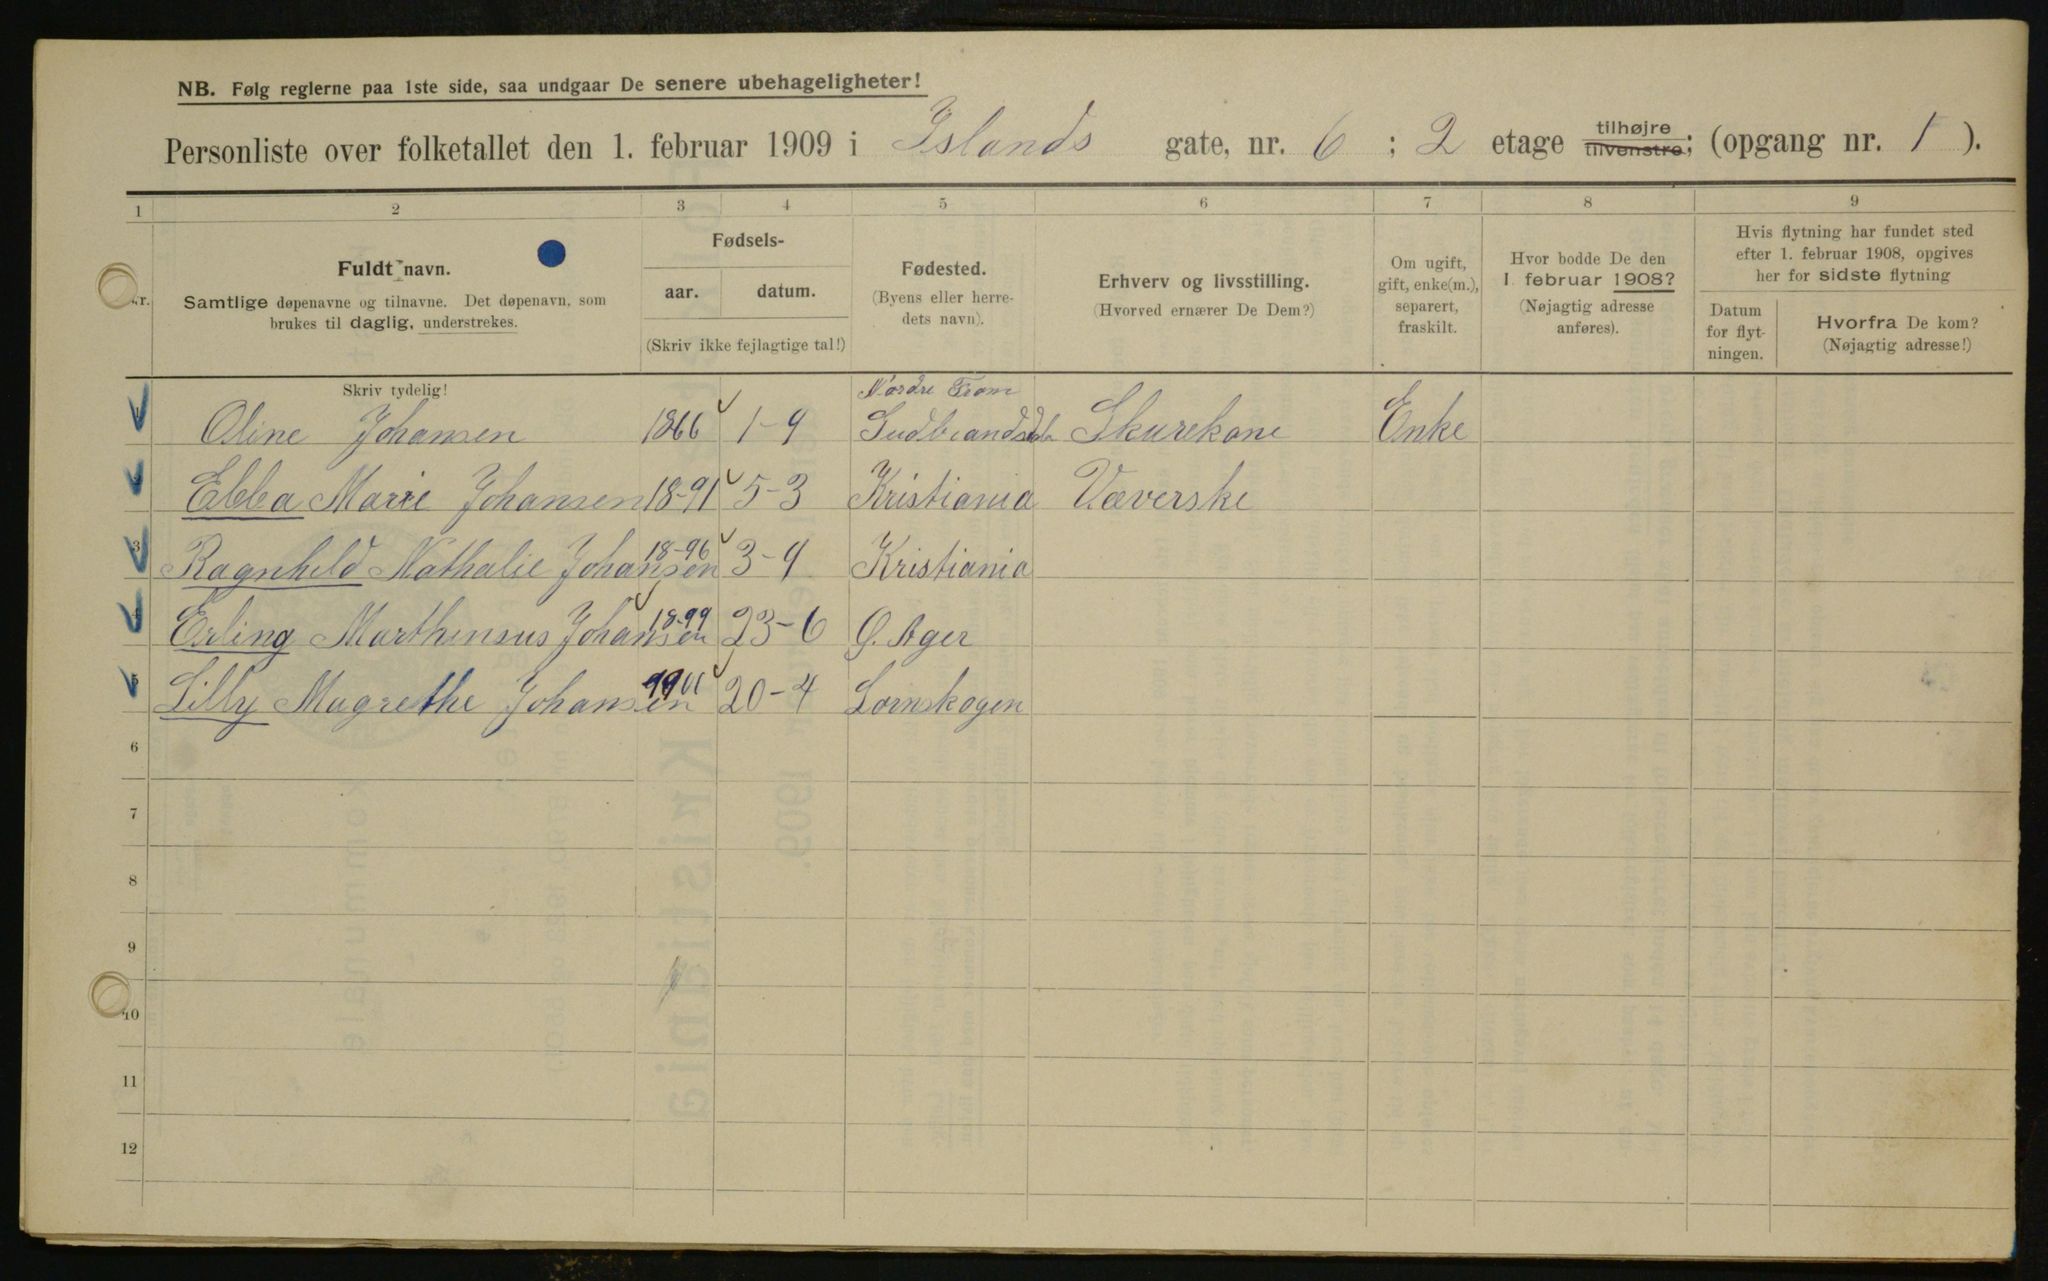 NB. Følg reglerne paa 1ste side, saa undgaar De senere ubehageligheter!
Personliste over folketallet den 1. februar 1909 i Islands gate, nr. 6 ; 2 etage tilhøjre tilvenstre; (opgang nr. 1 ).
1 2 3 4 5 6 7 8 9
Nr.
Fuldt navn.
Samtlige døpenavne og tilnavne. Det døpenavn, som
brukes til daglig, understrekes.
Fødsels-
aar. datum.
(Skriv ikke fejlagtige tal!)
Fødested.
(Byens eller herre-
dets navn).
Erhverv og livsstilling.
(Hvorved ernærer De Dem?)
Om ugift,
gift, enke(m.),
separert,
fraskilt.
Hvor bodde De den
1. februar 1908?
(Nøjagtig adresse
anføres).
Hvis flytning har fundet sted
efter 1. februar 1908, opgives
her for sidste flytning
Datum
for flyt-
ningen.
Hvorfra De kom?
(Nøjagtig adresse!)
Skriv tydelig!
Nordre From
1 Oline Johansen 1866 1-9 Gudbrandsdal Skurekone Enke
2 Ebba Marie Johansen 18-91 5-3 Kristiania Væverske
3 Ragnhild Nathalie Johansen 18-96 3-9 Kristiania
4 Erling Marthinsus Johansen 18-99 23-6 Ø. Ager
5 Lilly Magrethe Johansen 20-4 Lørnskogen
6
7
8
9
10
11
12